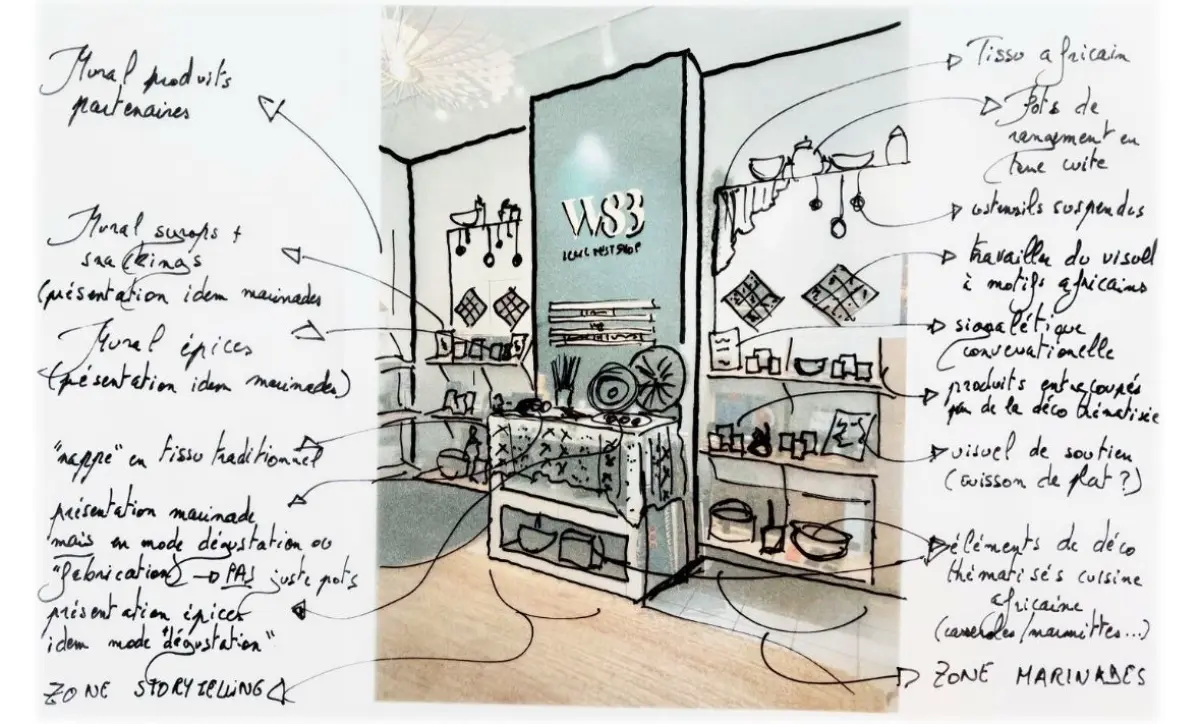 Mural produits
partenaires
Mural sirops +
snackings
(présentation idem marinades
Mural épices
(présentation idem marinades)
"nappe" en tissu traditionnel
présentation marinade
mais en mode dégustation ou
"fabrication" → PAS juste pots
présentation épices
idem mode "dégustation"
ZONE STORYTELLING
WSB
Tissu africain
Pots de
rangement en
terre cuite
ustensils suspendus
travailler du visuel
à motifs africains
signalétique
conversationelle
produits entrecoupés
par de la déco thématisée
visuel de soutien
(cuisson de plat ?)
éléments de déco
thématisés cuisine
africaine
(casseroles/marmittes...)
ZONE MARINADES